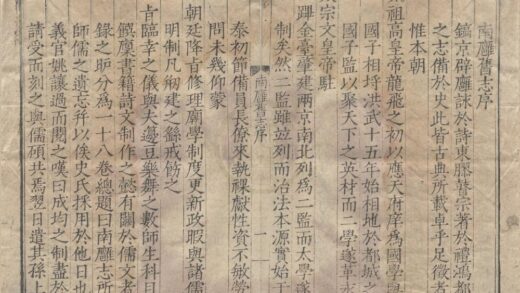 南廱舊志序
鎬京辟廱詠於詩東膠瞽宗著於禮鴻都
之志備於史此皆古典所載卓乎足徵者
惟本朝
祖高皇帝龍飛之初以應天府庠為國學與
國子相埒洪武十五年始相地於都城之
國子監以聚天下之英材而二學遂革永
宗文皇帝駐
蹕金臺肇建兩京南北列為二監而太學遂
制矣然二監雖並列而治法本源實始于
南廱志序 一
泰初節備員長僚來執祼獻性資不敏勞
問未幾仰蒙
朝廷降旨修理廟學制度更新政暇與諸儒
明制凡剏建之繇戒飭之
旨臨幸之儀與夫籩豆樂舞之數師生科目
饌廩書籍詩文制作之懿有關於儒文者
錄之眆分為一十八卷總題曰南廱志所
師儒之遺志并以俟史氏採用於他日也
義官姚讓過而閱之嘆曰成均之制盡於
請受而刻之與儒碩共焉翌日遣其孫上